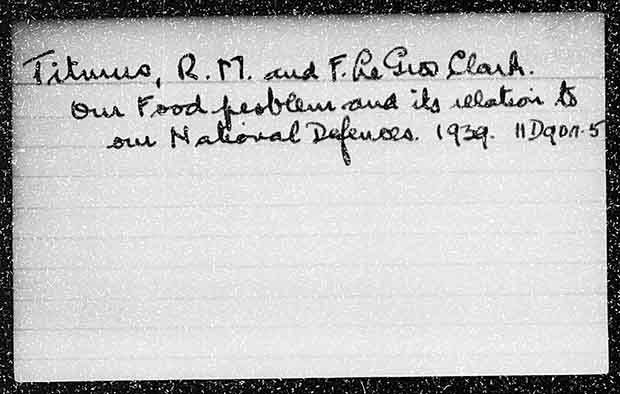 Titmus, R. M. and F. Le Gros Clark.
Our Food problem and its relation to
our National Defences. 1939. 11D907.5